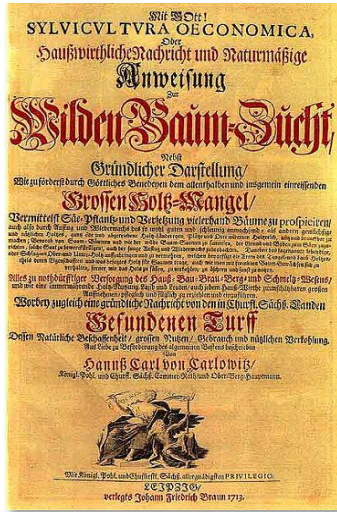 Mit GOtt!
SYLVICVLTVRA OECONOMICA,
Oder
Haußwirthliche Nachricht und Naturmäßige
Anweisung
Zur
Wilden Baum-Zucht,
Nebst
Gründlicher Darstellung/
Wie zu förderst durch Göttliches Benedeyen dem allenthalben und insgemein einreissenden
Grossen Holtz-Mangel/
Vermittelst Säe- Pflantz- und Versetzung vielerhand Bäume zu prospiciren/
Alles zu nothdürfftiger Versorgung des Hauß- Bau- Brau- Berg- und Schmeltz-Wesens/
Worbey zugleich eine gründliche Nachricht von den in Churfl. Sächß. Landen
Gefundenen Turff
Dessen Natürliche Beschaffenheit/ grossen Nutzen/ Gebrauch und nützlichen Verkohlung.
Aus Liebe zu Beförderung des algemeinen Bestens beschrieben
Von
Hannß Carl von Carlowitz/
Königl. Pohl. und Churfl. Sächß. Cammer-Rath und Ober-Berg-Hauptmann.
Mit Königl. Pohl. und Churfürstl. Sächß. allergnädigsten PRIVILEGIO.
LEIPZIG/
verlegts Johann Friedrich Braun 1713.